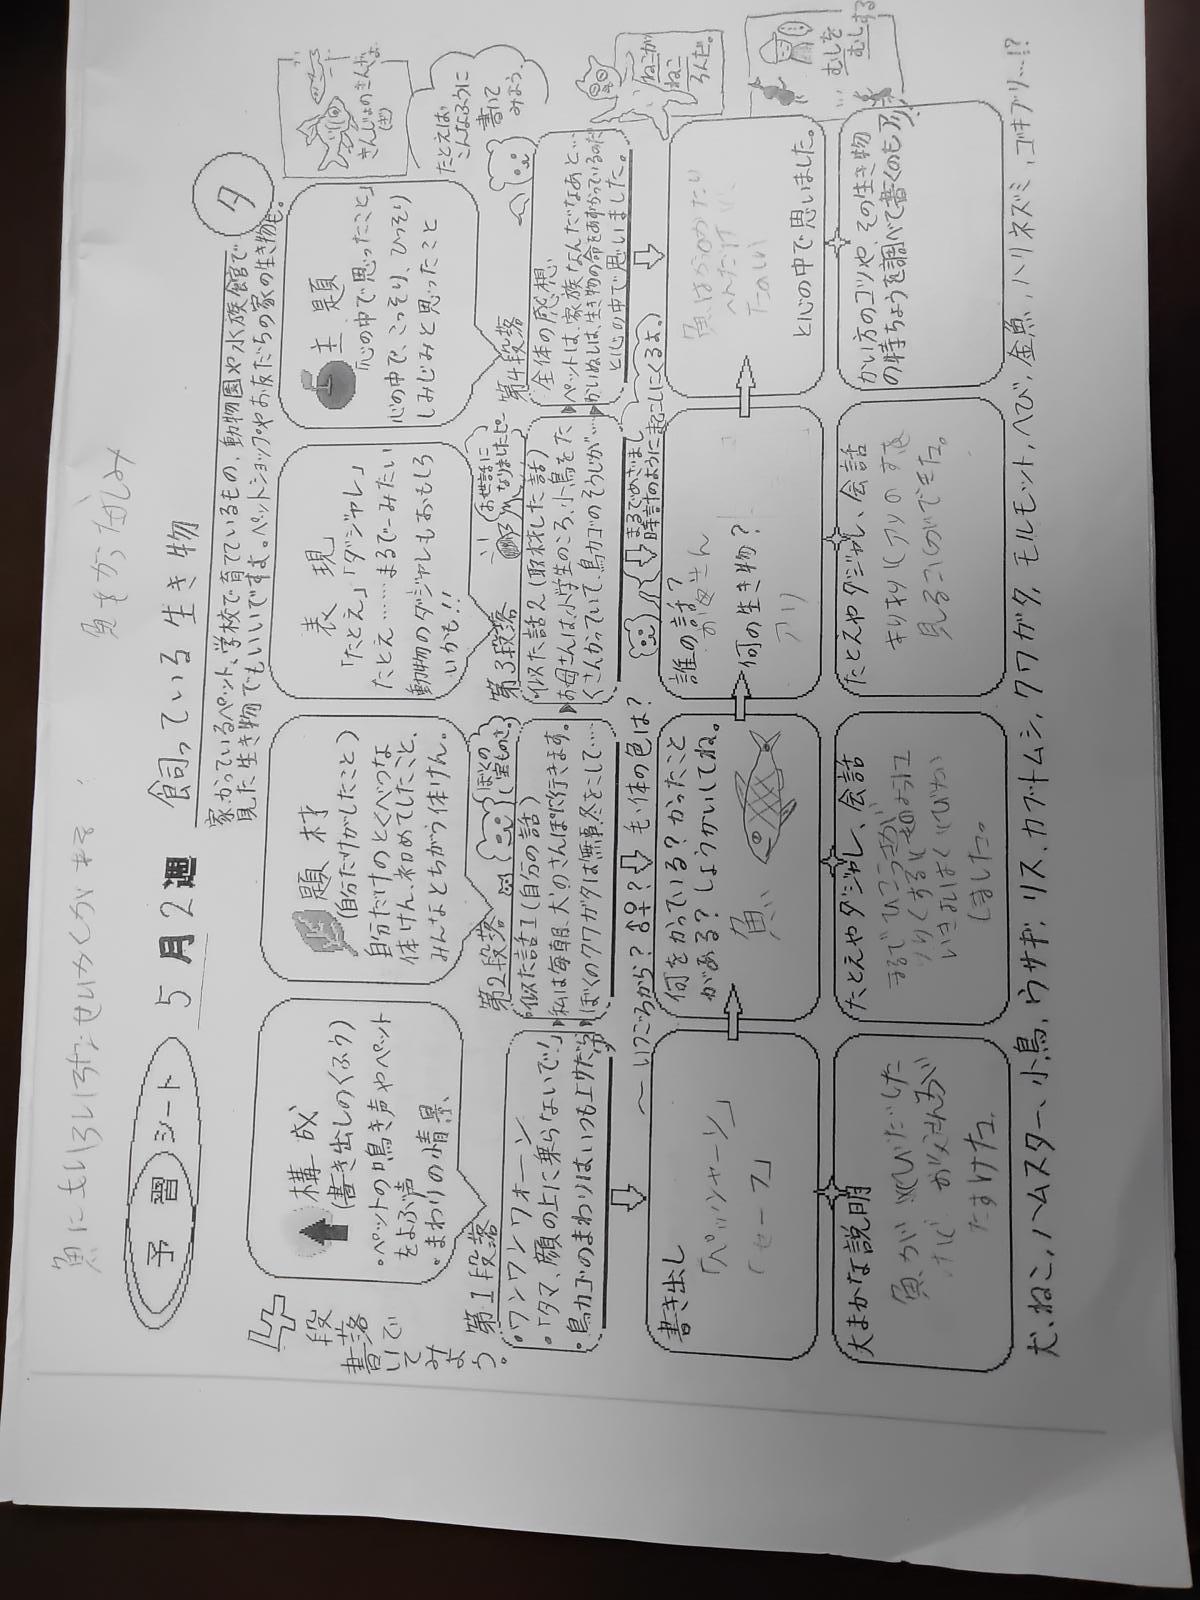 魚にもいろいろなせいかくがある
魚もかなしみ
予習シート
5月2週 飼っている生き物
タ
家でかっているペット、学校で育てているもの、動物園や水族館で
見た生き物でもいいですよ。ペットショップやお友だちの家の生き物も。
4段落で書いてみよう。
構成
(書き出しのくふう)
・ペットの鳴き声やペット
をよぶ声
・まわりの情景、
題材
(自分だけがしたこと)
自分だけのとくべつな
体けん、初めてしたこと、
みんなとちがう体けん。
表現
「たとえ」「ダジャレ」
たとえ……まるで〜みたい
動物のダジャレもおもしろ
いかも!!
主題
「心の中で思ったこと」
心の中で、こっそり、ひっそり
しみじみと思ったこと
きんじょのきんぎょ
(ぎ)
たとえば
こんなふうに
書いて
みよう。
第1段落
・ワンワンワォーン
・「タマ、顔の上に乗らないで!」
・鳥カゴのまわりはいつも上けだらけ
第2段落
ぼくの
宝もの。
似た話1(自分の話)
▶私は毎朝、犬のさんぽに行きます。
▶ぼくのクワガタは無事、冬をこして……
第3段落
お世話に
なりましたピー
似た話2(取材した話)
▶お母さんは小学生のころ、小鳥をた
くさんかっていて、鳥カゴのそうじが……
第4段落
全体の感想
▶ペットは、家族なんだなあと…
▶かいぬしは、生き物の命をあずかっているのだ
と心の中で思いました。
ねこが
ねこ
ろんだ。
むしを
むしする
〜いつごろから? ♂♀? もう体の色は?
まるでめざまし
時計のように起こしにくるよ。
書き出し
「ペッシャーン」
「セーフ」
何をかっている?かったこと
がある?しょうかいしてね。
魚
誰の話?
お母さん
何の生き物?
アリ
たのしい
と心の中で思いました。
大まかな説明
魚がとびだした
けど お父さんが
たすけた。
たとえやダジャレ、会話
しました。
たとえやダジャレ、会話
見ることができた。
かい方のコツや、その生き物
の特ちょうを調べて書くのもよし
犬、ねこ、ハムスター、小鳥、ウサギ、リス、カブトムシ、クワガタ、モルモット、へび、金魚、ハリネズミ、ゴキブリ…!?